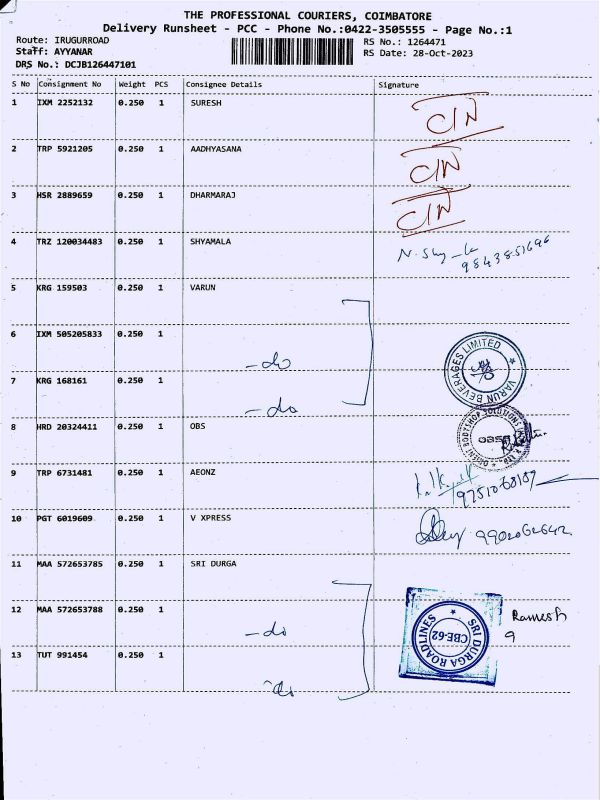 THE PROFESSIONAL COURIERS, COIMBATORE
Delivery Runsheet - PCC - Phone No.:0422-3505555 - Page No.:1
Route: IRUGURROAD
RS No.: 1264471
Staff: AYYANAR
RS Date: 28-Oct-2023
DRS No.: DCJB126447101
S No Consignment No Weight PCS Consignee Details Signature
1 IXM 2252132 0.250 1 SURESH
2 TRP 5921205 0.250 1 AADHYASANA
3 HSR 2889659 0.250 1 DHARMARAJ
4 TRZ 120034483 0.250 1 SHYAMALA
5 KRG 159503 0.250 1 VARUN
6 IXM 505205833 0.250 1 -do
VARUN BEVERAGES LIMITED
7 KRG 168161 0.250 1 -do
8 HRD 20324411 0.250 1 OBS
9 TRP 6731481 0.250 1 AEONZ
10 PGT 6019609 0.250 1 V XPRESS
11 MAA 572653785 0.250 1 SRI DURGA
12 MAA 572653788 0.250 1 -do
SRI DURGA ROADLINES
CBE-62
Ramesh
13 TUT 991454 0.250 1 -do